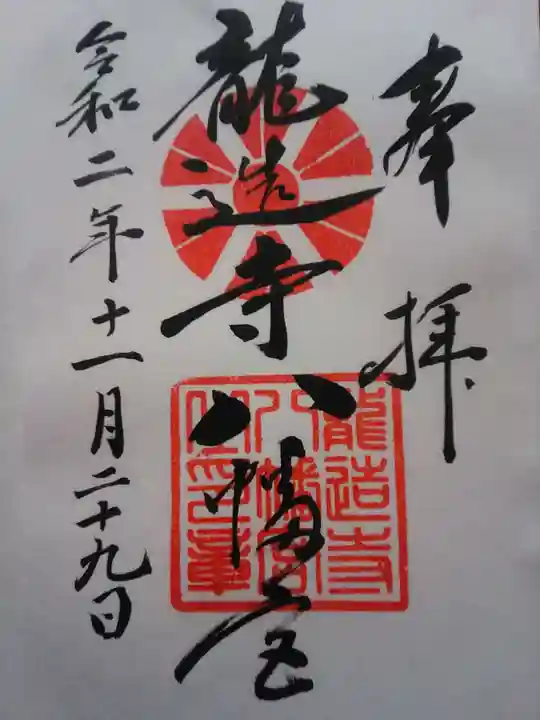 奉拝
龍造寺八幡宮
龍造寺
八幡宮
令和二年十一月二十九日